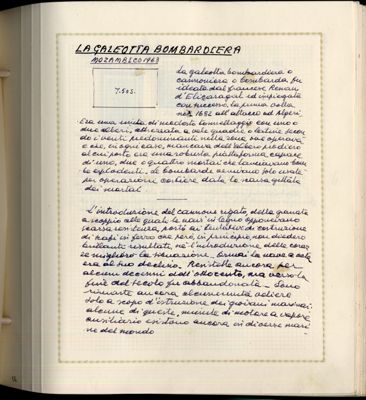 LA GALEOTTA BOMBARDIERA
MOZAMBICO 1963
7.50 s.
La galeotta bombardiera o
cannoniera o bombarda, fu
ideata dal francese Renau
d'Eliçaragal ed impiegata
con successo, la prima volta
nel 1682 all'attacco ad Algeri.
Era una unità di modesto tonnellaggio con uno o
due alberi, attrezzata a vele quadre o latine secon
do i venti predominanti nella zona ove operava
e che, in ogni caso, mancava dell'albero prodiero
al cui posto era una robusta piattaforma, capace
di uno, due o quattro mortai che lanciavano bom
be esplodenti. Le bombarde venivano solo usate
per operazioni costiere data la scarsa gittata
dei mortai.
L'introduzione del cannone rigato, della granata
a scoppio alle quali le navi in legno opponevano
scarsa resistenza, portò ai tentativi di costruzione
di scafi in ferro che però, in principio, non diedero
brillanti risultati, né l'introduzione delle coraz
ze migliorò la situazione. Ormai la nave a vela
era al suo declino. Resistette ancora per
alcuni decenni dell'ottocento, ma verso la
fine del secolo fu abbandonata. Sono
rimaste ancora alcune unità veliere
solo a scopo d'istruzione dei giovani marinai.
alcune di queste, munite di motore a vapore
ausiliario esistono ancora in diverse mari
ne del mondo